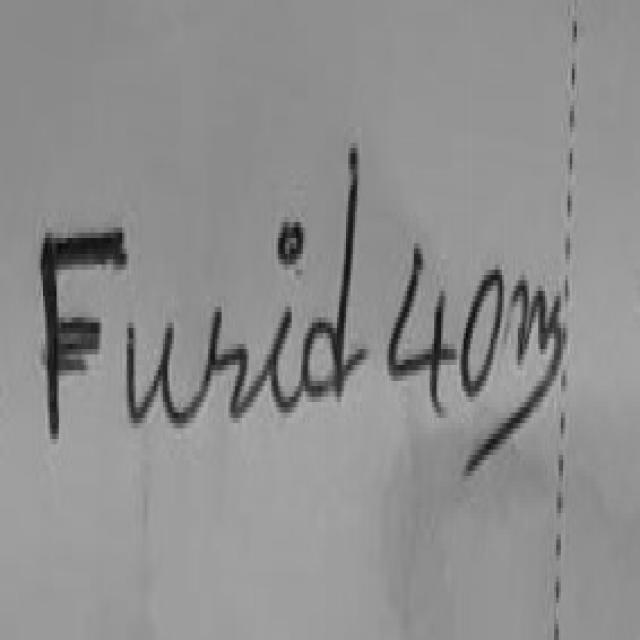 Furid 40mg